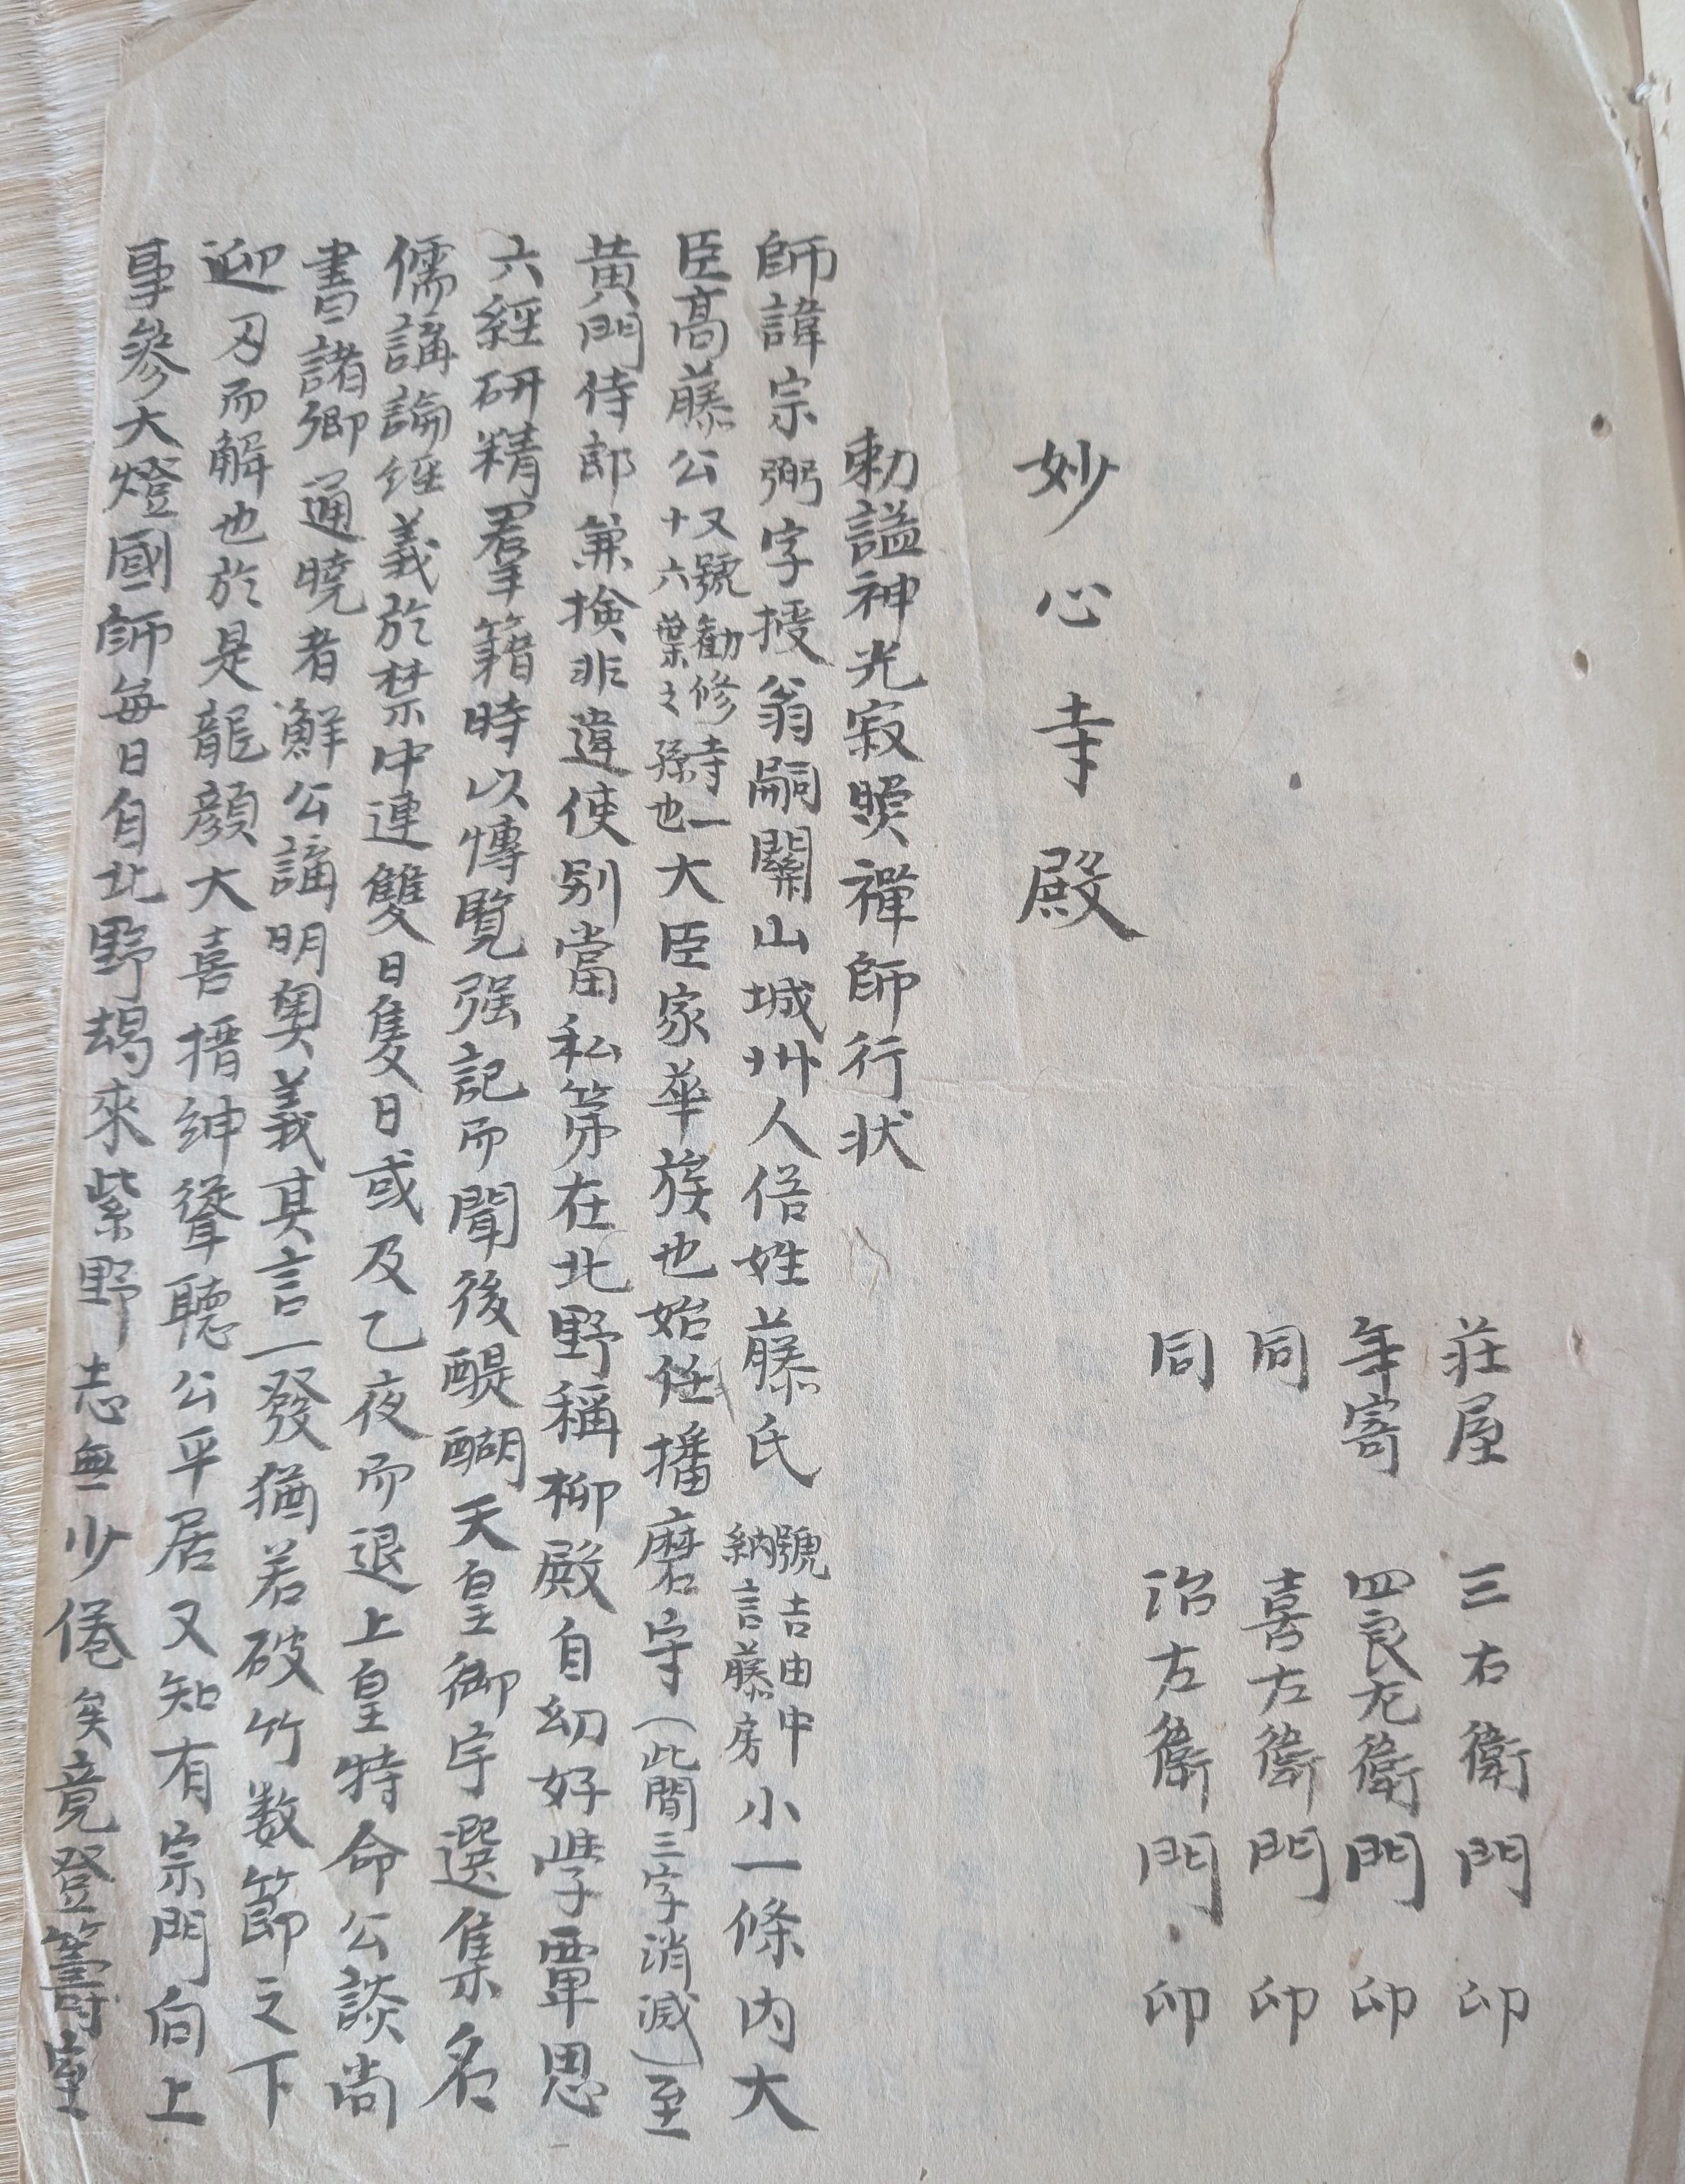 莊屋　三右衛門　印
年寄　四良左衛門　印
同　喜左衛門　印
同　治左衛門　印
妙心寺殿
勅謚神光寂照禪師行状
師諱宗弼字授翁嗣關山城州人俗姓藤氏號吉田中納言藤房小一條内大
臣高藤公又號勸修寺一十六葉之孫也大臣家華族也始任播磨守(此間三字消滅)至
黄門侍郎兼検非違使别當私第在北野稱柳殿自幼好學覃思
六經研精羣籍時以慱覽强記而聞後醍醐天皇御宇選集名
儒講論経義於禁中連雙日隻日或及乙夜而退上皇特命公談尚
書諸卿通曉者鮮公講明奥義其言一發猶若破竹数節之下
迎刃而解也於是龍顔大喜搢紳聳聽公平居又知有宗門向上
事參大燈國師毎日自北野朅來紫野志無少倦矣竟登籌室